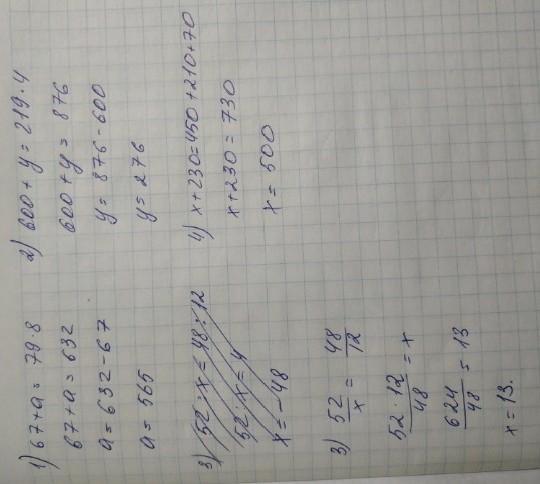 1) 67+a = 79·8
67+a = 632
a = 632-67
a = 565
3) 52 : x = 48 : 12
52 : x = 4
x = -48
3) 52/x = 48/12
52·12/48 = x
624/48 = 13
x = 13.
2) 600 + y = 219·4
600 + y = 876
y = 876-600
y = 276
4) x+230=450+210+70
x+230 = 730
x = 500